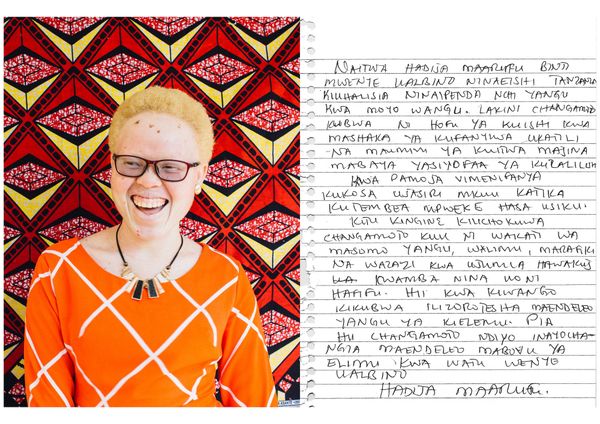 NAITWA HADIJA MAARUFU BINTI
MWENYE UALBINO NINAEISHI TANZANIA
KIUHALISIA NINAIPENDA NCHI YANGU
KWA MOYO WANGU. LAKINI CHANGAMOTO
KUBWA NI HOFU YA KUISHI KWA
MASHAKA YA KUFANYIWA UKATILI
NA MAUMIVU YA KUITWA MAJINA
MABAYA YASIYOFAA YA KUDALILISHA
HIVYO PAMOJA VIMENIFANYA
KUKOSA UJASIRI MKUU KATIKA
KUTEMBEA MPWEKE HASA USIKU.
KITU KINGINE KILICHOKUWA
CHANGAMOTO KUU NI WAKATI WA
MASOMO YANGU, WALIMU, MARAFIKI
NA WAZAZI KWA UJUMLA HAWAKUJ
UA KWAMBA NINA UONI
HAFIFU. HII KWA KIWANGO
KIKUBWA ILIZOROTESHA MAENDELEO
YANGU YA KIELIMU. PIA
HII CHANGAMOTO NDIYO INAYOCHA-
NGIA MAENDELEO MABOVU YA
ELIMU KWA WATU WENYE
UALBINO
HADIJA MAARUFU.